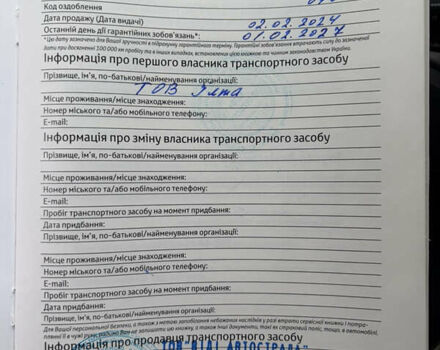 Код оздоблення
Дата продажу (Дата видачі) 02.02.2024
Останній день дії гарантійних зобов'язань*: 01.02.2027
*Цю дату зазначено для Вашої зручності в підрахунку гарантійного терміну. Гарантійні зобов'язання втрачають силу до зазначеної
дати при досягненні 100 000 км пробігу та в інших випадках, встановлених цією книжкою та чинним законодавством України.
Інформація про першого власника транспортного засобу
Прізвище, ім'я, по-батькові/найменування організації:
ТОВ Ялта
Місце проживання/місце знаходження:
Номер міського та/або мобільного телефону:
E-mail:
Інформація про зміну власника транспортного засобу
Прізвище, ім'я, по-батькові/найменування організації:
Місце проживання/місце знаходження:
Номер міського та/або мобільного телефону:
E-mail:
Пробіг транспортного засобу на момент придбання:
Дата придбання:
Прізвище, ім'я, по-батькові/найменування організації:
Місце проживання/місце знаходження:
Номер міського та/або мобільного телефону:
E-mail:
Пробіг транспортного засобу на момент придбання:
Дата придбання:
Прізвище, ім'я, по-батькові/найменування організації:
Для Вашої персональної безпеки, а також з метою запобігання небажаних наслідків у разі втрати сервісної книжки
не залишати цю книжку, а також інші документи, такі як страховий поліс, тощо, в автомобілі.
Інформація про продавця транспортного засобу
ТОВ "ВІДІ АВТОСТРАДА"